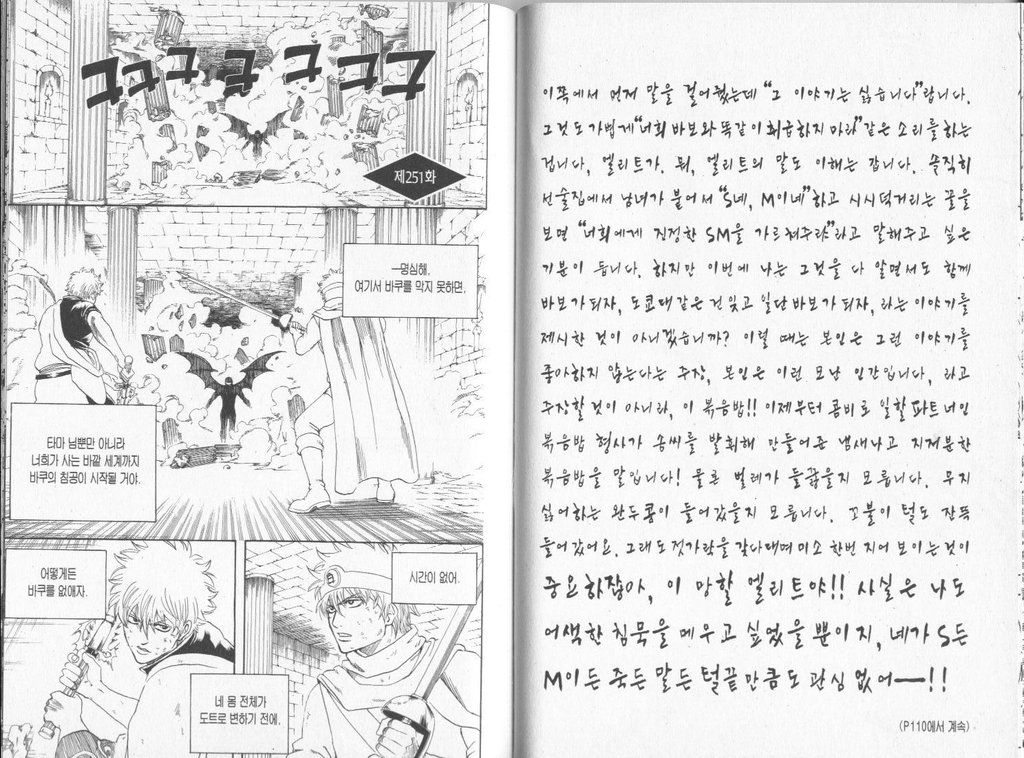 그그그그그그그
제251화
―명심해.
여기서 바쿠를 막지 못하면,
타마 님뿐만 아니라
너희가 사는 바깥 세계까지
바쿠의 침공이 시작될 거야.
어떻게든
바쿠를 없애자.
시간이 없어.
네 몸 전체가
도트로 변하기 전에.
이쪽에서 먼저 말을 걸어줬는데 “그 이야기는 싫습니다”랍니다.
그것도 가볍게 “너희 바보와 똑같이 취급하지 마라” 같은 소리를 하는
겁니다, 엘리트가. 뭐, 엘리트의 말도 이해는 갑니다. 솔직히
선술집에서 남녀가 붙어서 “S네, M이네” 하고 시시덕거리는 꼴을
보면 “너희에게 진정한 SM을 가르쳐주랴”라고 말해주고 싶은
기분이 듭니다. 하지만 이번에 나는 그것을 다 알면서도 함께
바보가 되자, 도쿄대 같은 건 잊고 일단 바보가 되자, 라는 이야기를
제시한 것이 아니겠습니까? 이럴 때는 본인은 그런 이야기를
좋아하지 않는다는 주장, 본인은 이런 모난 인간입니다, 라고
주장할 것이 아니라, 이 볶음밥!! 이제부터 콤비로 일할 파트너인
볶음밥 형사가 솜씨를 발휘해 만들어준 냄새나고 지저분한
볶음밥을 말입니다! 물론 벌레가 들끓을지 모릅니다. 무지
싫어하는 완두콩이 들어갔을지 모릅니다. 꼬불이 털도 잔뜩
들어갔어요. 그래도 젓가락을 갖다대며 미소 한번 지어 보이는 것이
중요하잖아, 이 망할 엘리트야!! 사실은 나도
어색한 침묵을 메우고 싶었을 뿐이지, 네가 S든
M이든 죽든 말든 털끝만큼도 관심 없어――!!
(P110에서 계속)